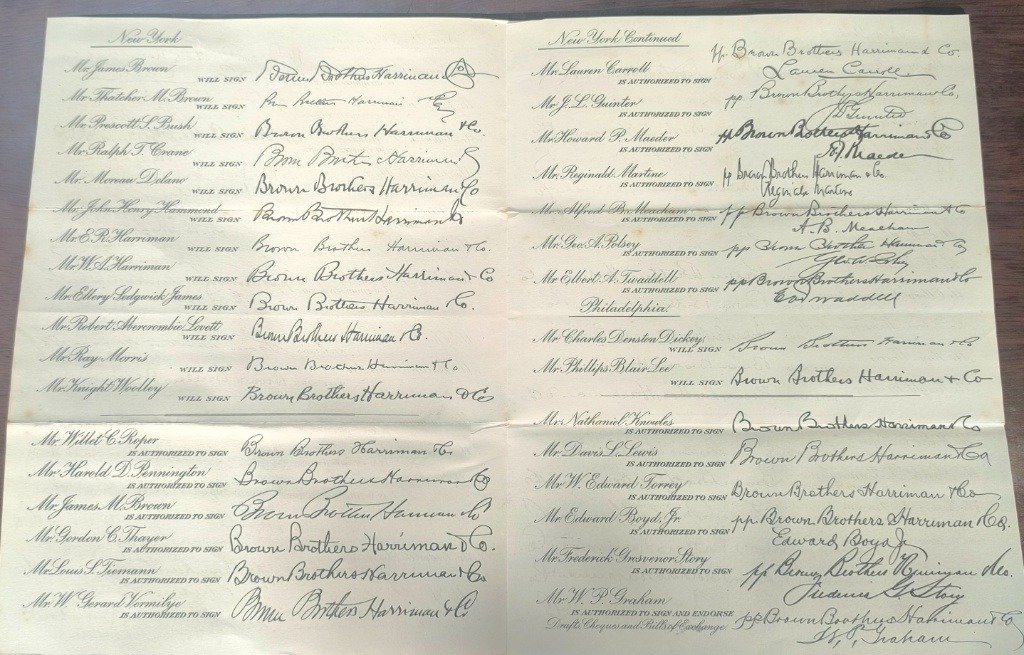 New York
Mr. James Brown
WILL SIGN Brown Brothers Harriman & Co
Mr. Thatcher M. Brown
WILL SIGN Brown Brothers Harriman & Co
Mr. Prescott S. Bush
WILL SIGN Brown Brothers Harriman & Co.
Mr. Ralph T. Crane
WILL SIGN Brown Brothers Harriman &
Mr. Moreau Delano
WILL SIGN Brown Brothers Harriman & Co
Mr. John Henry Hammond
WILL SIGN Brown Brothers Harriman & Co
Mr. E. R. Harriman
WILL SIGN Brown Brothers Harriman & Co.
Mr. W. A. Harriman
WILL SIGN Brown Brothers Harriman & Co
Mr. Ellery Sedgwick James
WILL SIGN Brown Brothers Harriman & Co.
Mr. Robert Abercrombie Lovett
WILL SIGN Brown Brothers Harriman & Co.
Mr. Ray Morris
WILL SIGN Brown Brothers Harriman & Co
Mr. Knight Woolley
WILL SIGN Brown Brothers Harriman & Co
Mr. Willet C. Roper
IS AUTHORIZED TO SIGN Brown Brothers Harriman & Co
Mr. Harold D. Pennington
IS AUTHORIZED TO SIGN Brown Brothers Harriman & Co
Mr. James M. Brown
IS AUTHORIZED TO SIGN Brown Brothers Harriman & Co
Mr. Gordon C. Thayer
IS AUTHORIZED TO SIGN Brown Brothers Harriman & Co.
Mr. Louis S. Tiemann
IS AUTHORIZED TO SIGN Brown Brothers Harriman & Co
Mr. W. Gerard Vermilye
IS AUTHORIZED TO SIGN Brown Brothers Harriman & Co.
New York Continued
pp. Brown Brothers Harriman & Co.
Mr. Lauren Carroll
IS AUTHORIZED TO SIGN Lauren Carroll
Mr. J. L. Gunter
pp. Brown Brothers Harriman & Co,
IS AUTHORIZED TO SIGN
Mr. Howard P. Maeder
pp Brown Brothers Harriman & Co
IS AUTHORIZED TO SIGN Maeder
Mr. Reginald Martine
pp Brown Brothers Harriman & Co.
IS AUTHORIZED TO SIGN Reginald Martine
Mr. Alfred B. Meacham
pp Brown Brothers Harriman & Co
IS AUTHORIZED TO SIGN A. B. Meacham
Mr. Geo. A. Polsey
pp Brown Brothers Harriman & Co
IS AUTHORIZED TO SIGN
Mr. Elbert A. Twaddell
pp Brown Brothers Harriman & Co
IS AUTHORIZED TO SIGN
Philadelphia.
Mr. Charles Denston Dickey
WILL SIGN Brown Brothers Harriman & Co
Mr. Phillips Blair Lee
WILL SIGN Brown Brothers Harriman & Co
Mr. Nathaniel Knowles
IS AUTHORIZED TO SIGN Brown Brothers Harriman & Co
Mr. Davis L. Lewis
IS AUTHORIZED TO SIGN Brown Brothers Harriman & Co
Mr. W. Edward Torrey
IS AUTHORIZED TO SIGN Brown Brothers Harriman & Co
Mr. Edward Boyd, Jr.
pp. Brown Brothers Harriman & Co.
IS AUTHORIZED TO SIGN Edward Boyd Jr
Mr. Frederick Grosvenor Story
pp Brown Brothers Harriman & Co.
IS AUTHORIZED TO SIGN Frederick G. Story
Mr. W. P. Graham
IS AUTHORIZED TO SIGN AND ENDORSE pp Brown Brothers Harriman & Co
Drafts, Cheques and Bills of Exchange W. P. Graham